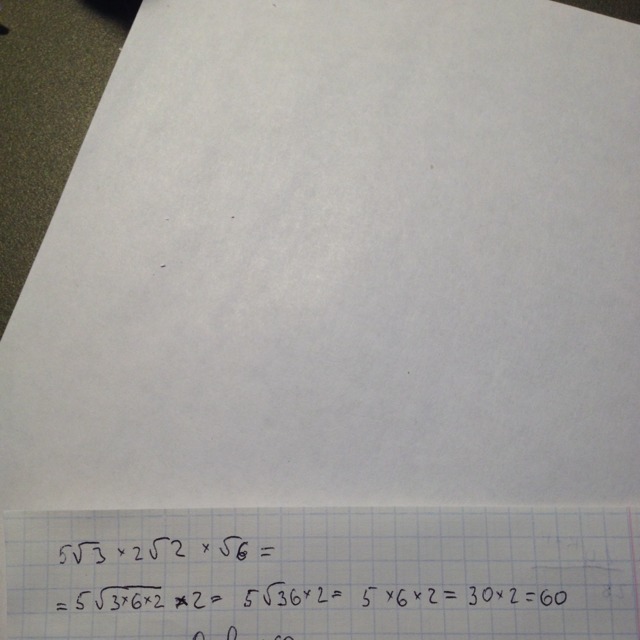 5√3 × 2√2 × √6 =
= 5√3×6×2 × 2 = 5√36 × 2 = 5 × 6 × 2 = 30 × 2 = 60